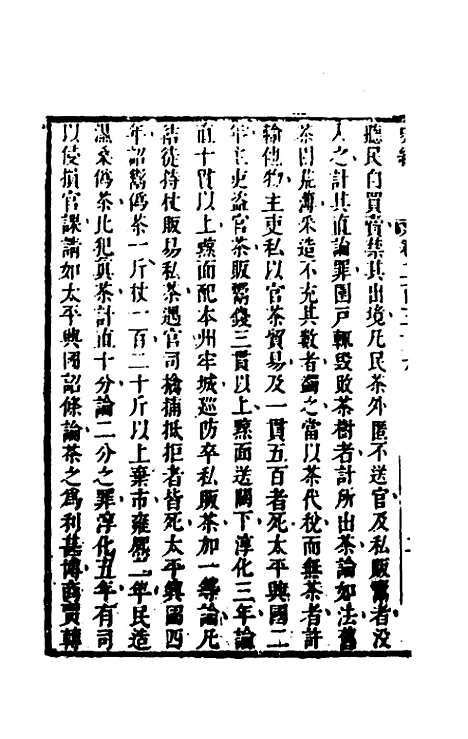 聽民自買賣禁其出境凡民茶外匿不送官及私販鬻者没
入之計其直論罪園戸輒毀敗茶樹者計所出茶論如法舊
茶園荒薄采造不充其數者蠲之當以茶代稅而無茶者許
輸他物主吏私以官茶貿易及一貫五百者死太平興國二
年主吏盜官茶販鬻錢三貫以上黥面送闕下淳化三年論
直十貫以上黥面配本州牢城巡防卒私販茶加一等論凡
結徒持仗販易私茶遇官司擒捕抵拒者皆死太平興國四
年詔鬻僞茶一斤杖一百二十斤以上棄市雍熙二年民造
溫桑僞茶比犯眞茶計直十分論二分之罪淳化五年有司
以侵損官課請如太平興國詔條論茶之爲利甚博商賈轉